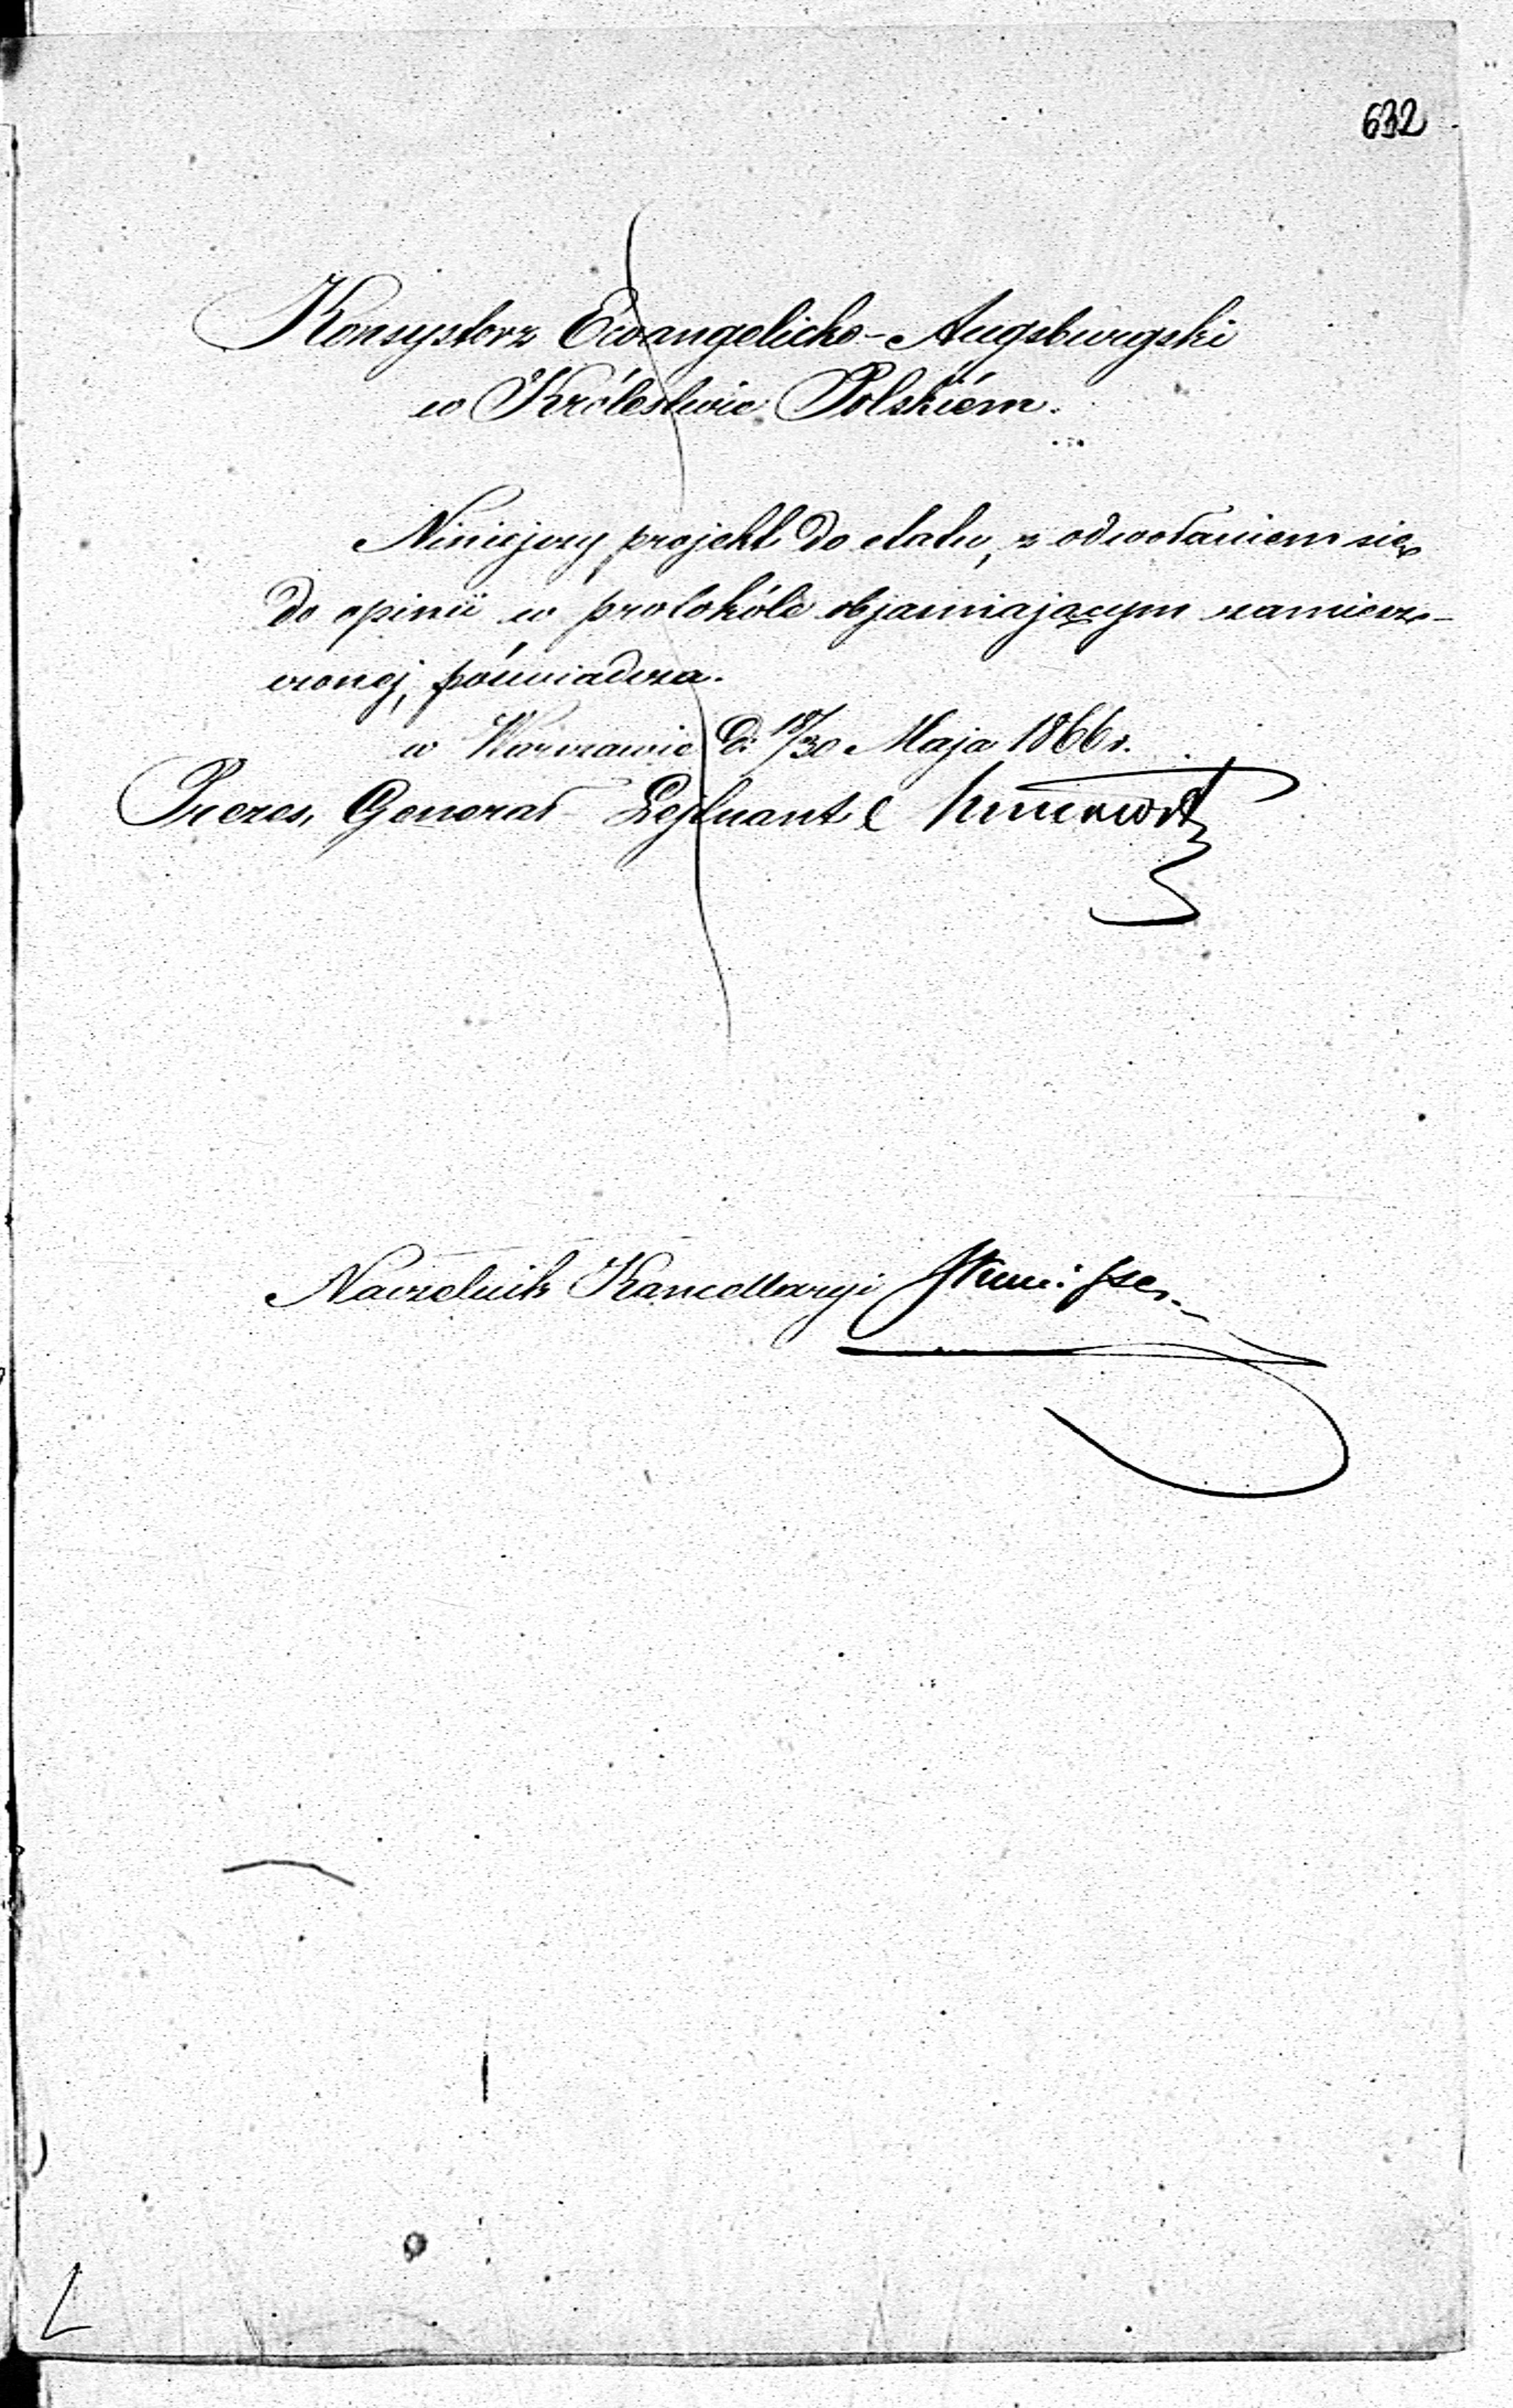 632
Konsystorz Ewangelicko-Augsburgski
w Królestwie Polskiém.
Niniejszy projekt do etatu, z odwołaniem się
do opinii w protokóle objaśniającym zamieszc-
czonej, poświadcza.
w Warszawie d: 18/30 Maja 1866 r.
Prezes, Generał Lejtnant
Naczelnik Kancellaryi